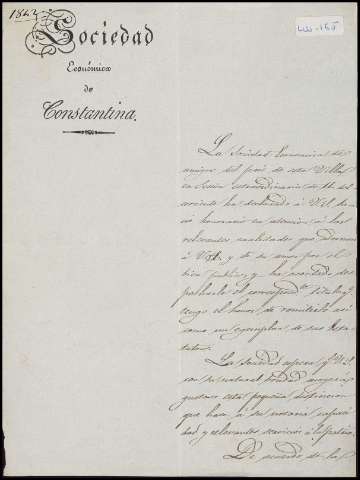 1842
Sociedad
Económica
de
Constantina.
La Sociedad Economica de
amigos del pais de esta Villa
en sesion extraordinaria de 11 del
corriente ha declarado á V.S. de
su honorario en atencion á las
relevantes cualidades que adornan
á V.S. y de su amor por el
bien publico, y ha acordado
el correspond.te titulo q.e
tengo el honor de remitirle asi
como un ejemplar de sus Esta
tutos.
La Sociedad espera q.e V.S.
con su natural bondad
gustoso esta pequeña distincion
que hace á su notoria capaci
dad y relevantes servicios á la patria.
De acuerdo de la